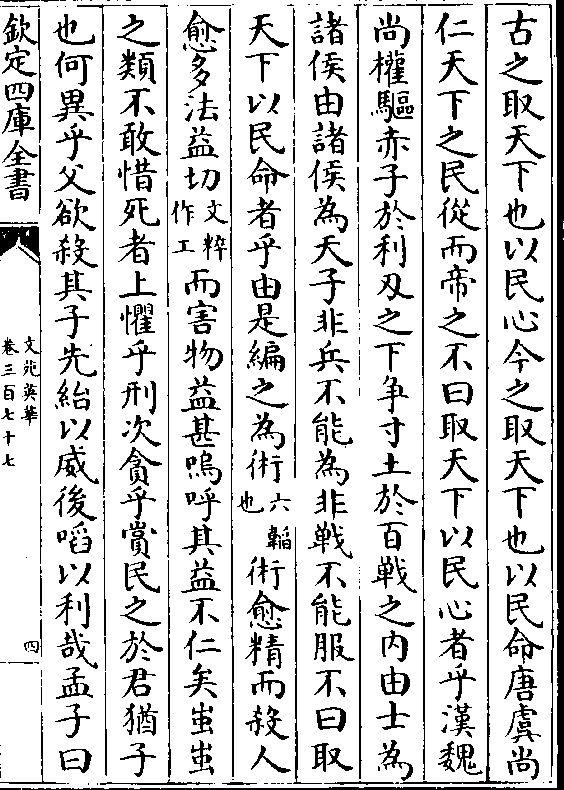 古之取天下也以民心今之取天下也以民命唐虞尚
仁天下之民從而帝之不曰取天下以民心者乎漢魏
尚權驅赤子於利刃之下爭寸土於百戰之內由士為
諸侯由諸侯為天子非兵不能為非戰不能服不曰取
天下以民命者乎由是編之為術六韜也術愈精而殺人
愈多法益切文粹作工而害物益甚嗚呼其益不仁矣蚩蚩
之類不敢惜死者上懼乎刑次貪乎賞民之於君猶子
也何異乎父欲殺其子先紿以威後啗以利哉孟子曰
欽定四庫全書
文苑英華
卷三百七十七
四